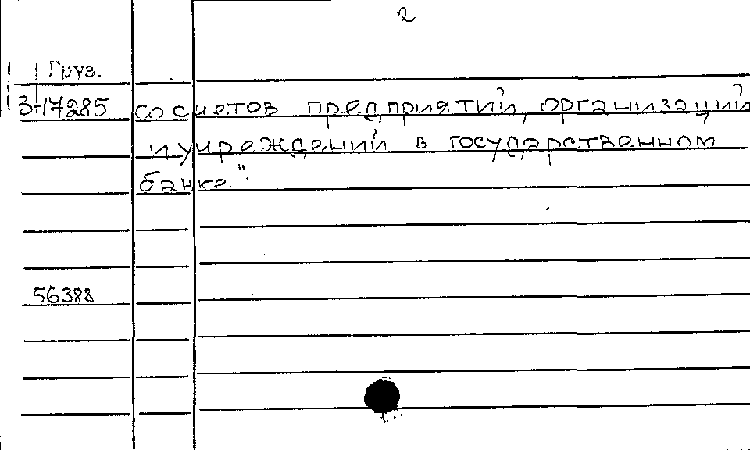 2
Груз.
3-17285 со счетов предприятий, организаций
и учреждений в государственном
банке".
56388